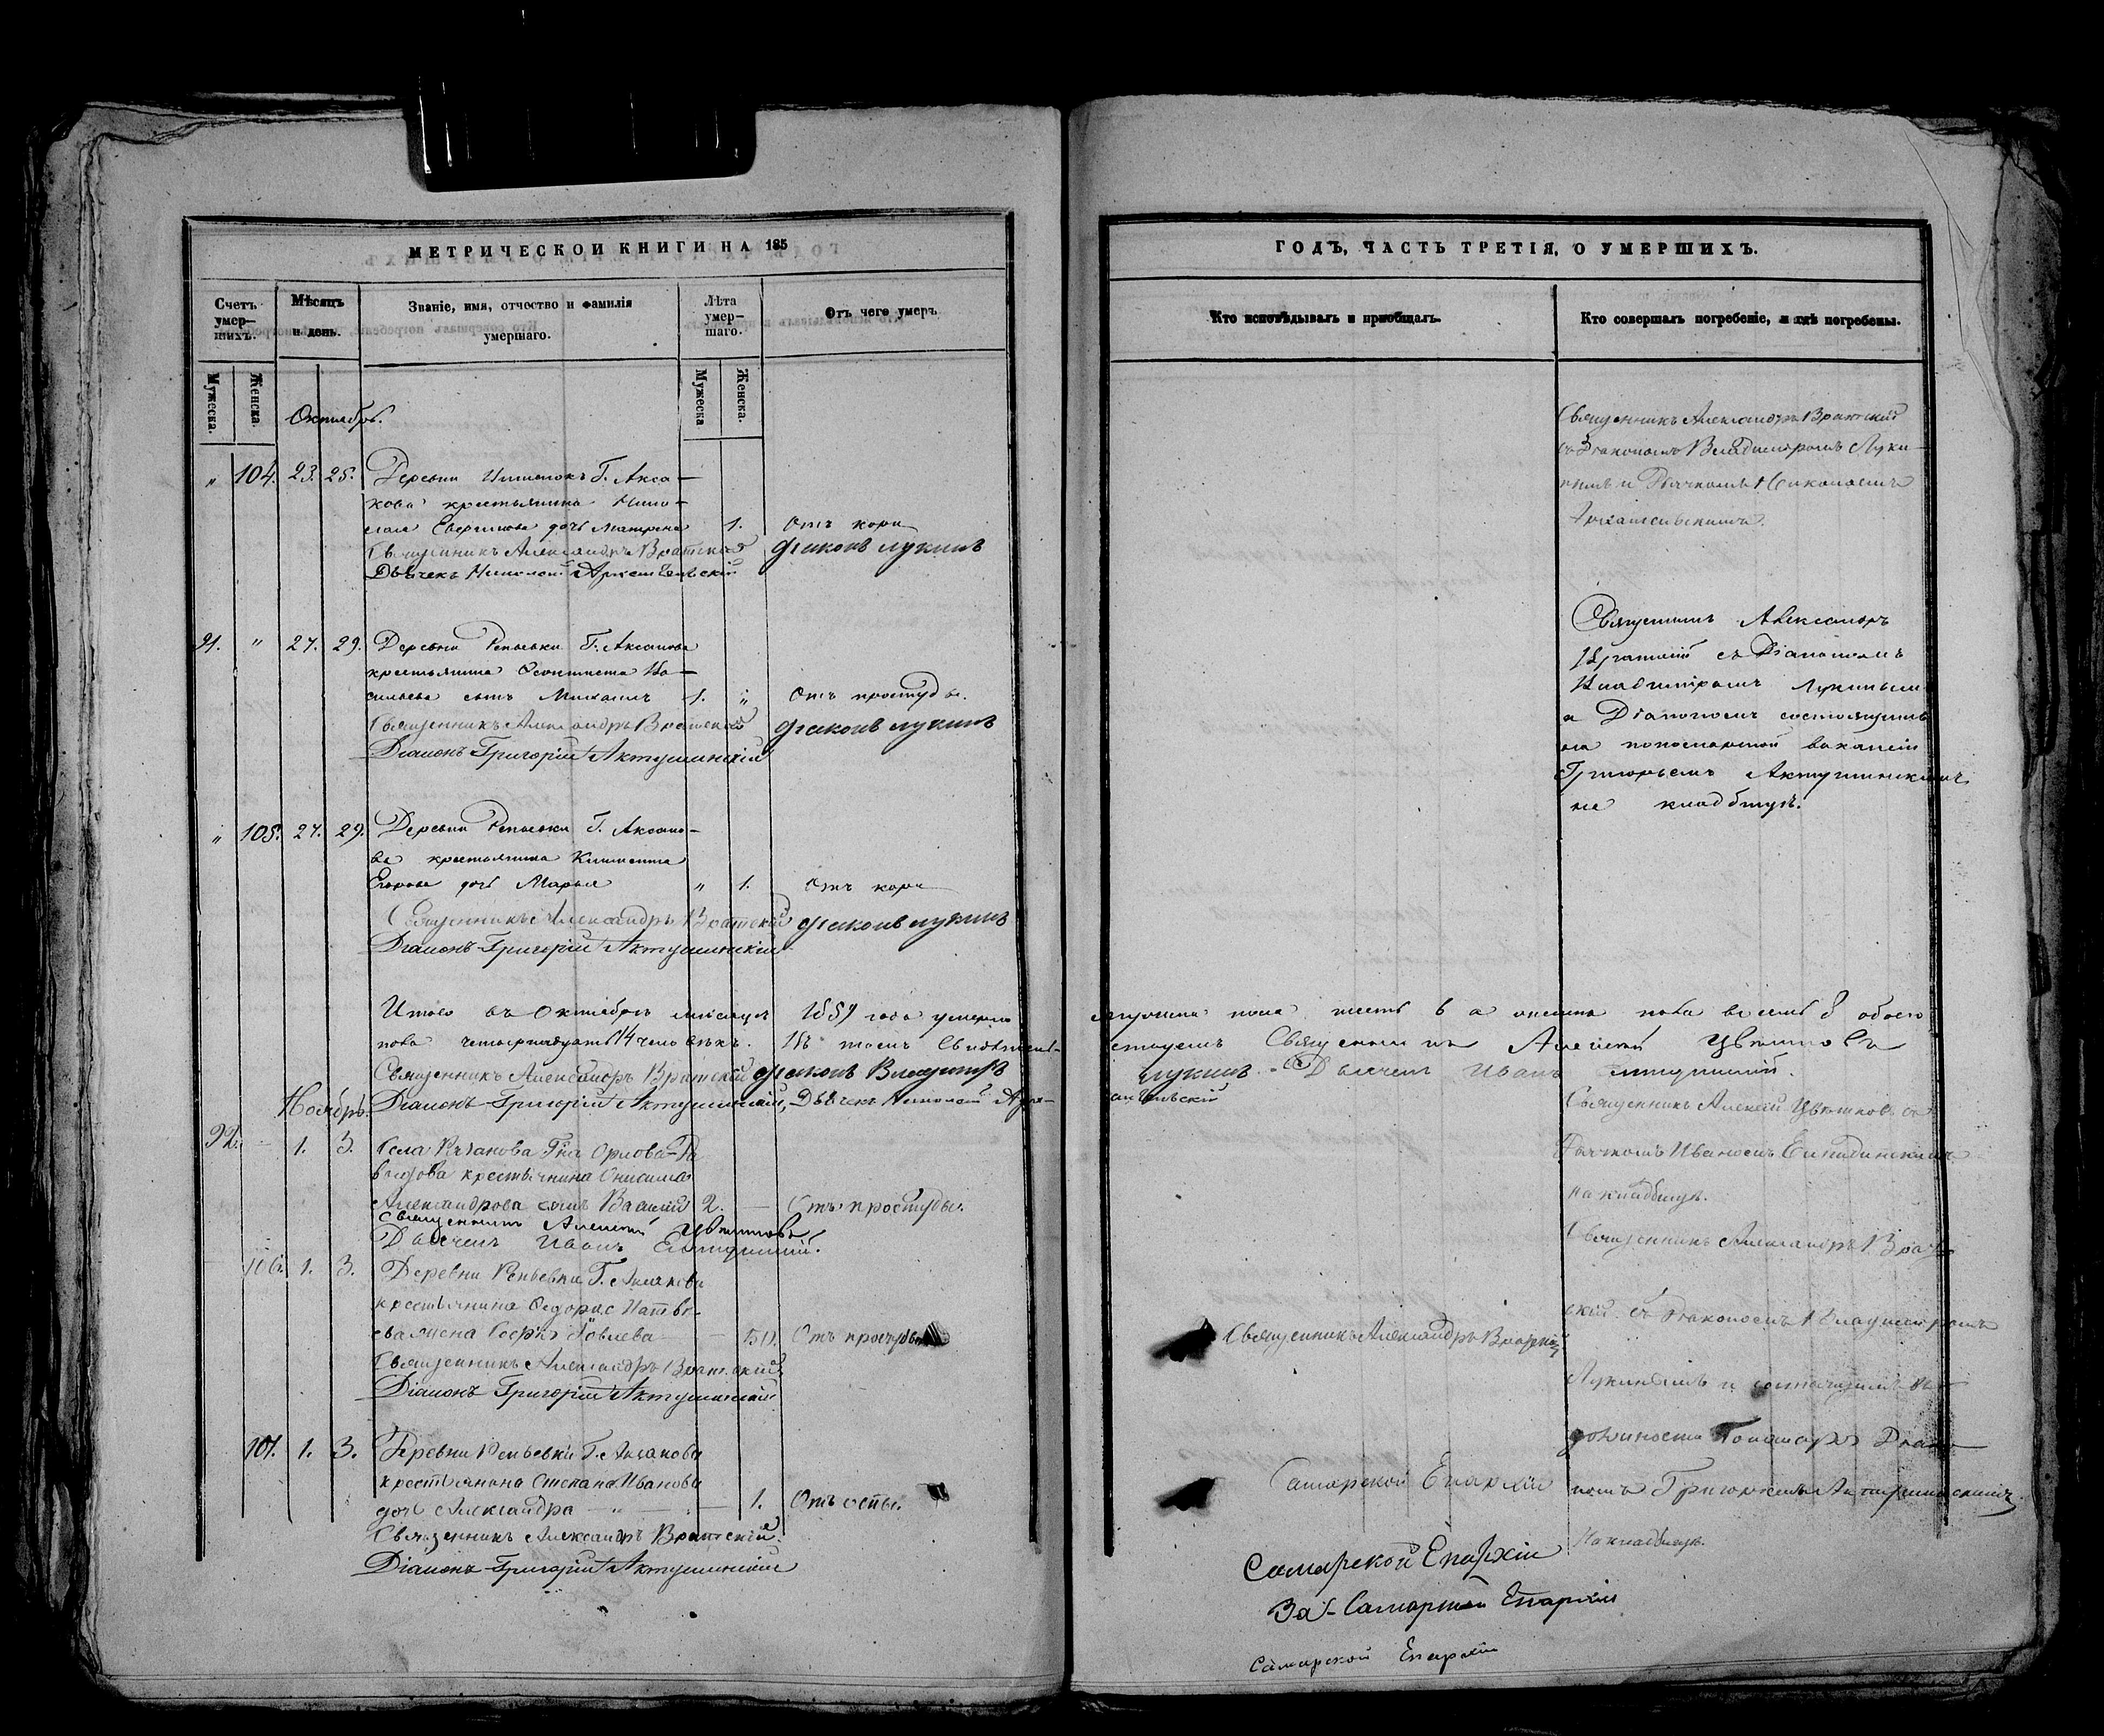 МЕТРИЧЕСКОЙ КНИГИ НА 185
Счетъ умер—шихъ.
Мѣсяцъ и день.
Званіе, имя, отчество и фамилія умершаго.
Лѣта умер—шаго.
Отъ чего умеръ.
Мужеска.
Женска.
Мужеска
Женска.
Октябрь.
" 104. 23. 25. Деревни Г. Акса—
кова крестьянина Нико—
лая дочь Матрена 1. Отъ кори
Священникъ Александръ Вратскій Діаконъ Лукинъ
Дьячекъ Николай Архангельскій
91. " 27. 29. Деревни Репьевки Г. Аксакова
крестьянина Феоктиста Ва—
сильева сынъ Михаилъ 1. " Отъ простуды.
Священникъ Александръ Вратскій Діаконъ Лукинъ
Діаконъ Григорій Актушинскій
" 105. 27. 29. Деревни Репьевки Г. Аксако—
ва крестьянина Климента
Егорова дочь Марья " 1. Отъ кори
Священникъ Александръ Вратскій Діаконъ Лукинъ
Діаконъ Григорій Актушинскій
Итого въ Октябрѣ мѣсяцѣ 1859 года умерло
пола четырнадцать 14 человѣкъ. Въ томъ свидѣтель—
Священникъ Александръ Вратскій Діаконъ Владиміръ
Ноябрь. Діаконъ Григорій Актушинскій, Дьячекъ Николай Арх—
92. — 1. 3. Села Рѣзанова Гна Орлова-Да
выдова крестьянина Онисима
Александрова сынъ Василій 2. — Отъ простуды.
Священникъ Алексѣй Цвѣтковъ
Дьячекъ Иванъ
106. 1. 3. Деревни Репьевки Г. Аксакова
крестьянина Федора Матвѣ—
ева жена Іовлева — 50. Отъ простуды
Священникъ Александръ Вратскій
Діаконъ Григорій Актушинскій
107. 1. 3. Деревни Репьевки Г. Аксакова
крестьянина Степана Иванова
дочь Александра — " — 1. Отъ оспы.
Священникъ Александръ Вратскій.
Діаконъ Григорій Актушинскій
ГОДЪ, ЧАСТЬ ТРЕТІЯ, О УМЕРШИХЪ.
Кто исповѣдывалъ и пріобщалъ.
Кто совершалъ погребеніе, и гдѣ погребены.
Священникъ Александръ Вратскій
съ Діакономъ Владиміромъ Луки—
нымъ и Дьячкомъ Николаемъ
Архангельскимъ.
Священникъ Александръ
Вратскій съ Діакономъ
Владиміромъ Лукинымъ
и Діакономъ состоящимъ
на пономарской вакансіи
Григорьемъ Актушинскимъ
на кладбищѣ.
мужеска пола шесть 6 а женска пола восемь 8 обоего
ствуемъ Священникъ Алексѣй Цвѣтковъ
Лукинъ. Дьячекъ Иванъ
ангельскій
Священникъ Алексѣй Цвѣтковъ съ
Дьячкомъ Иваномъ
на кладбищѣ.
Священникъ Александръ Врат—
скій съ Діакономъ Владиміромъ
Священникъ Александръ Вратскій
Лукинымъ и состоящимъ въ
должности Пономаря Діако—
номъ Григорьемъ Актушинскимъ.
На кладбищѣ.
Самарской Епархіи
Самарской Епархіи
За-Самарской Епархіи
Самарской Епархіи